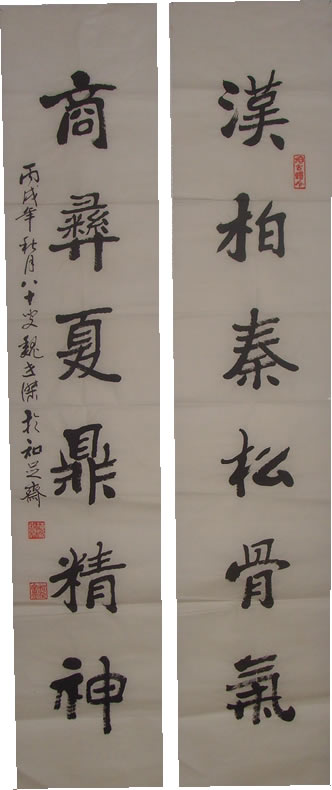 漢柏秦松骨氣
商彝夏鼎精神
丙戌年秋月八十叟魏士傑於知足齋